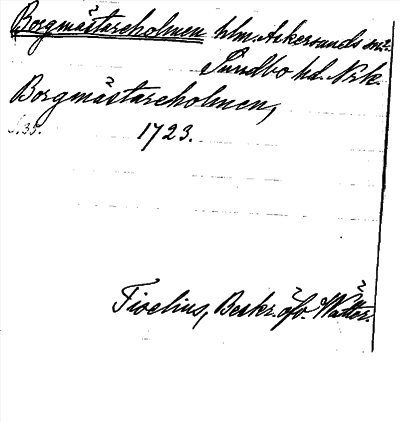 Borgmästareholmen hlm. Askersunds sn:
Sundbo hd. Nrk.
Borgmästareholmen,
S. 35. 1723.
Tiselius, Beskr. öfv. Wätter.